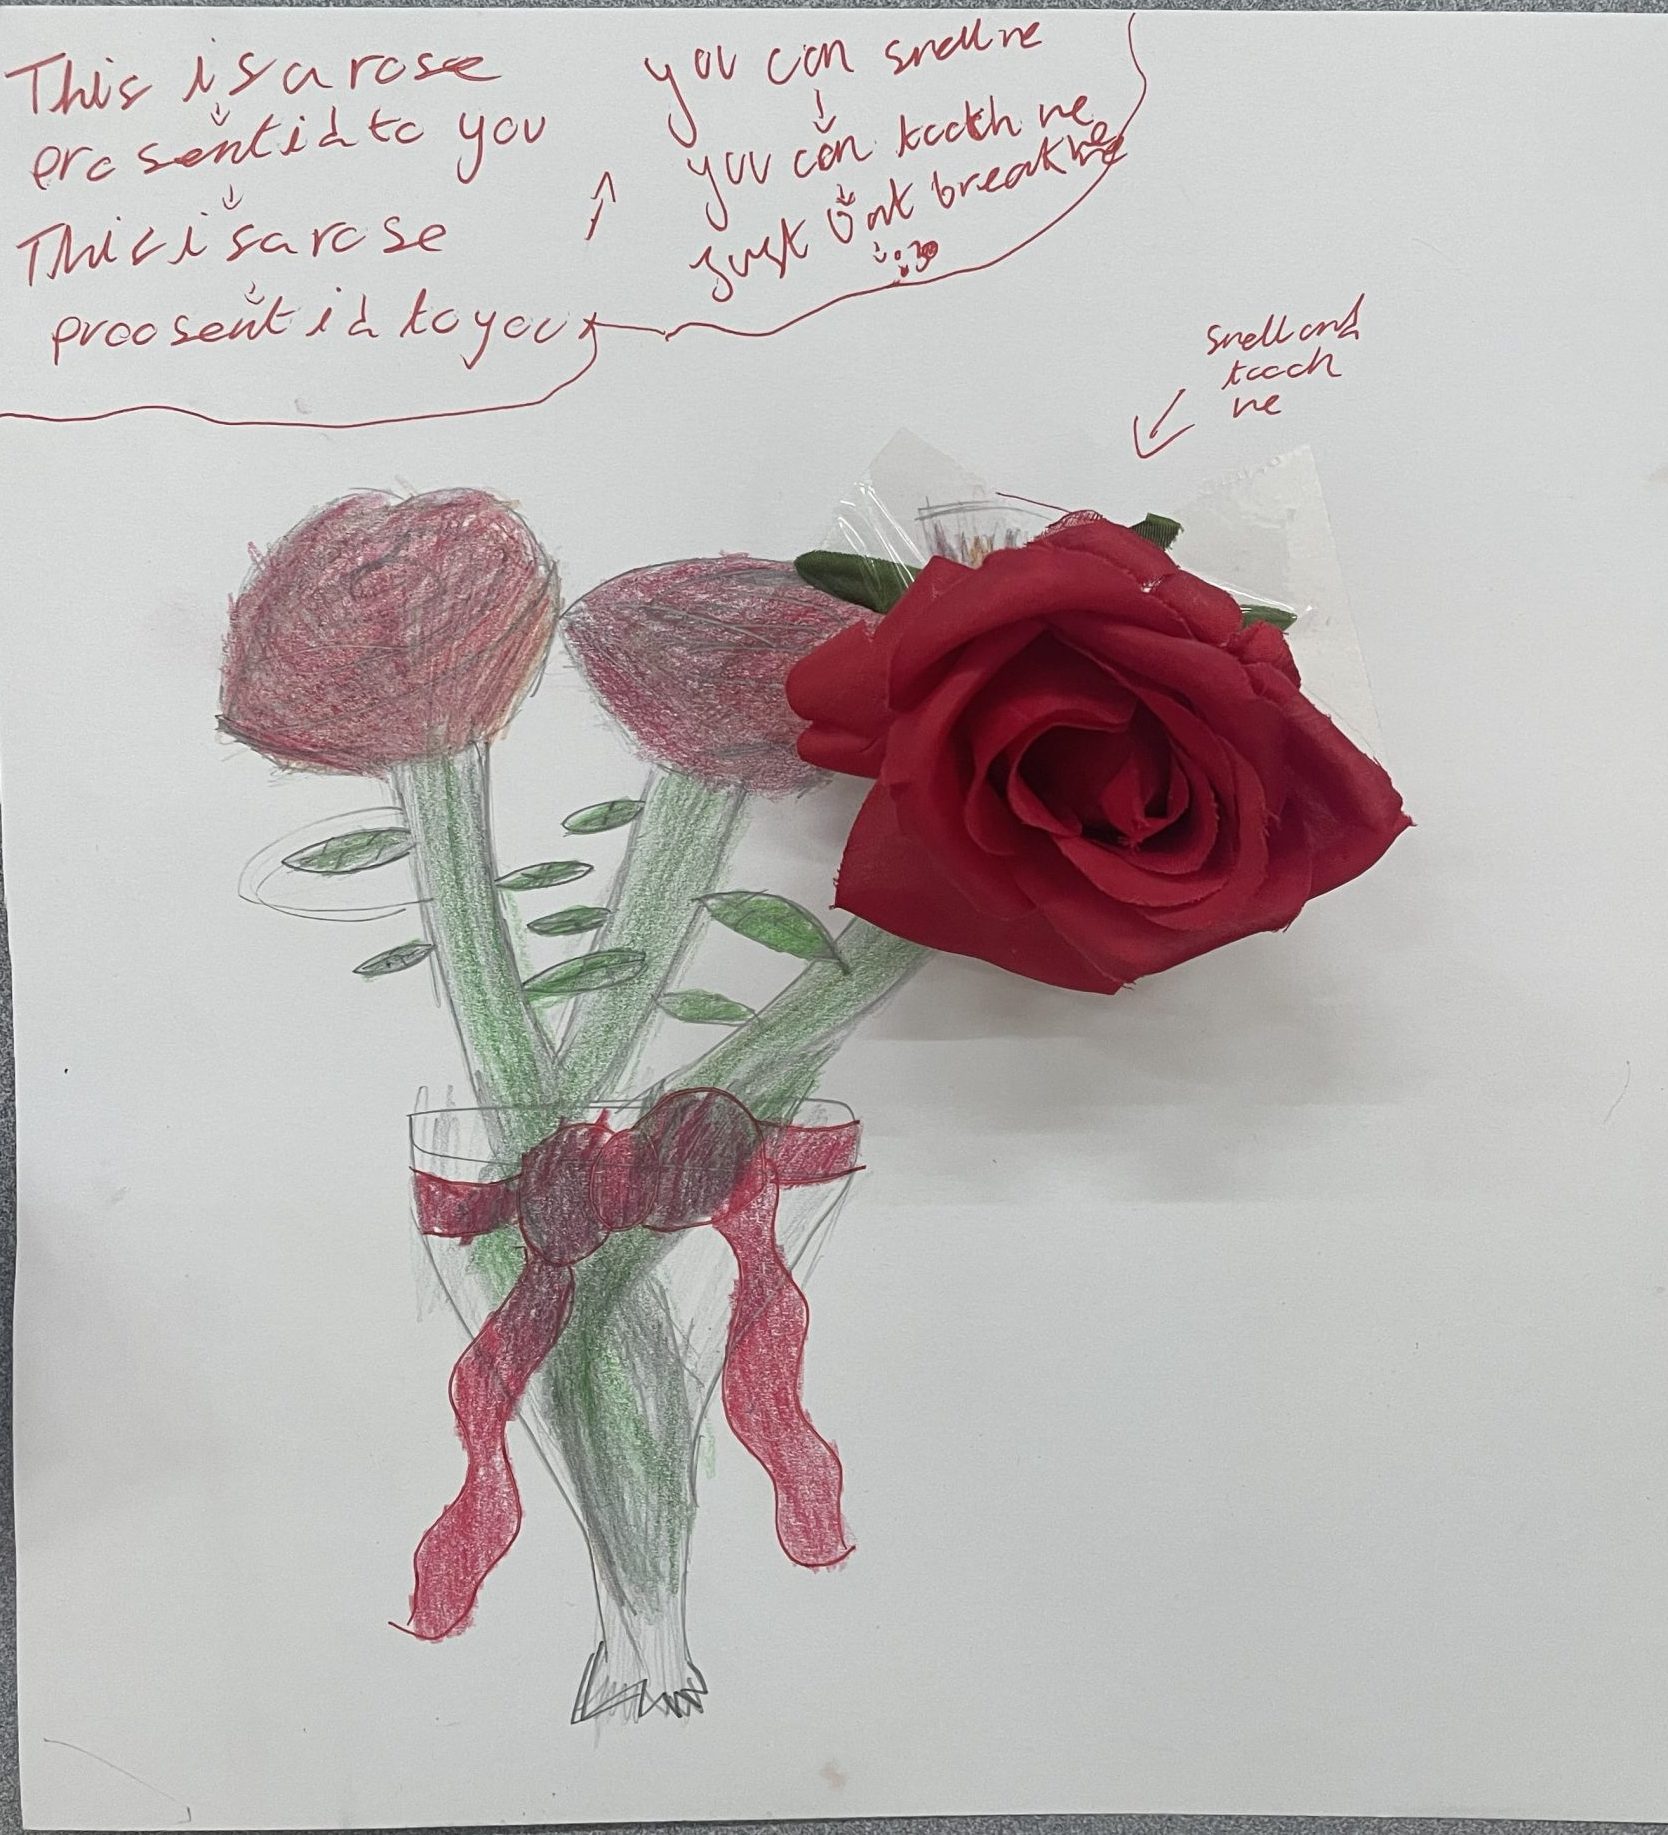 This is a rose
prosentid to you
This is a rose
proosentid to you
you can smell me
you can tooch me
just dont break me
smell and
tooch
me